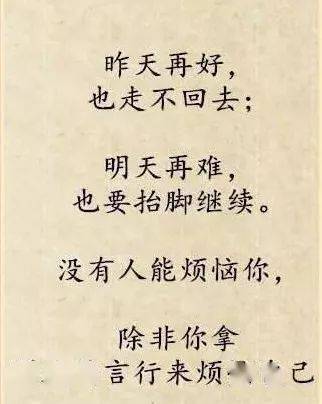 昨天再好，
也走不回去；
明天再难，
也要抬脚继续。
没有人能烦恼你，
除非你拿
言行来烦 己